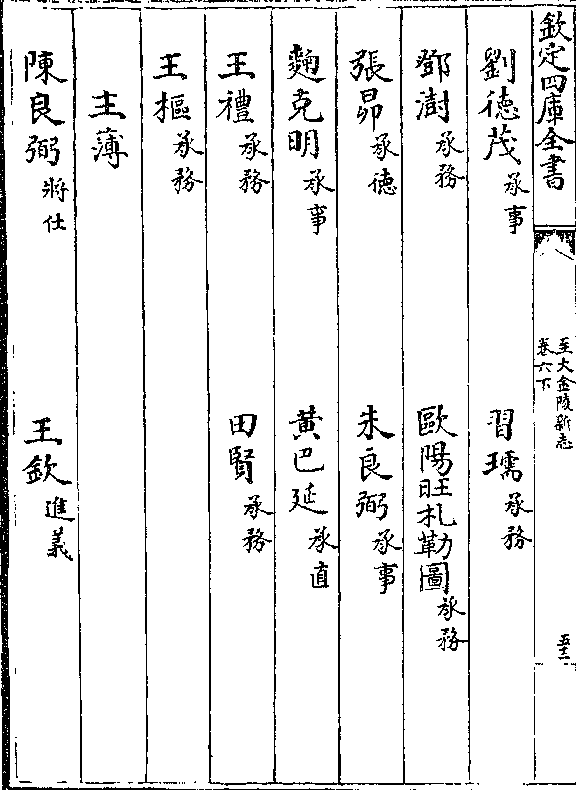 欽定四庫全書
至大金陵新志
卷六下
五十二
劉德茂承事
習㻋承務
鄧澍承務
歐陽旺札勒圖承務
張昴承德
朱良弼承事
麴克明承事
黄巴延承直
王禮承務
田賢承務
王樞承務
主薄
陳良弼將仕
王欽進義